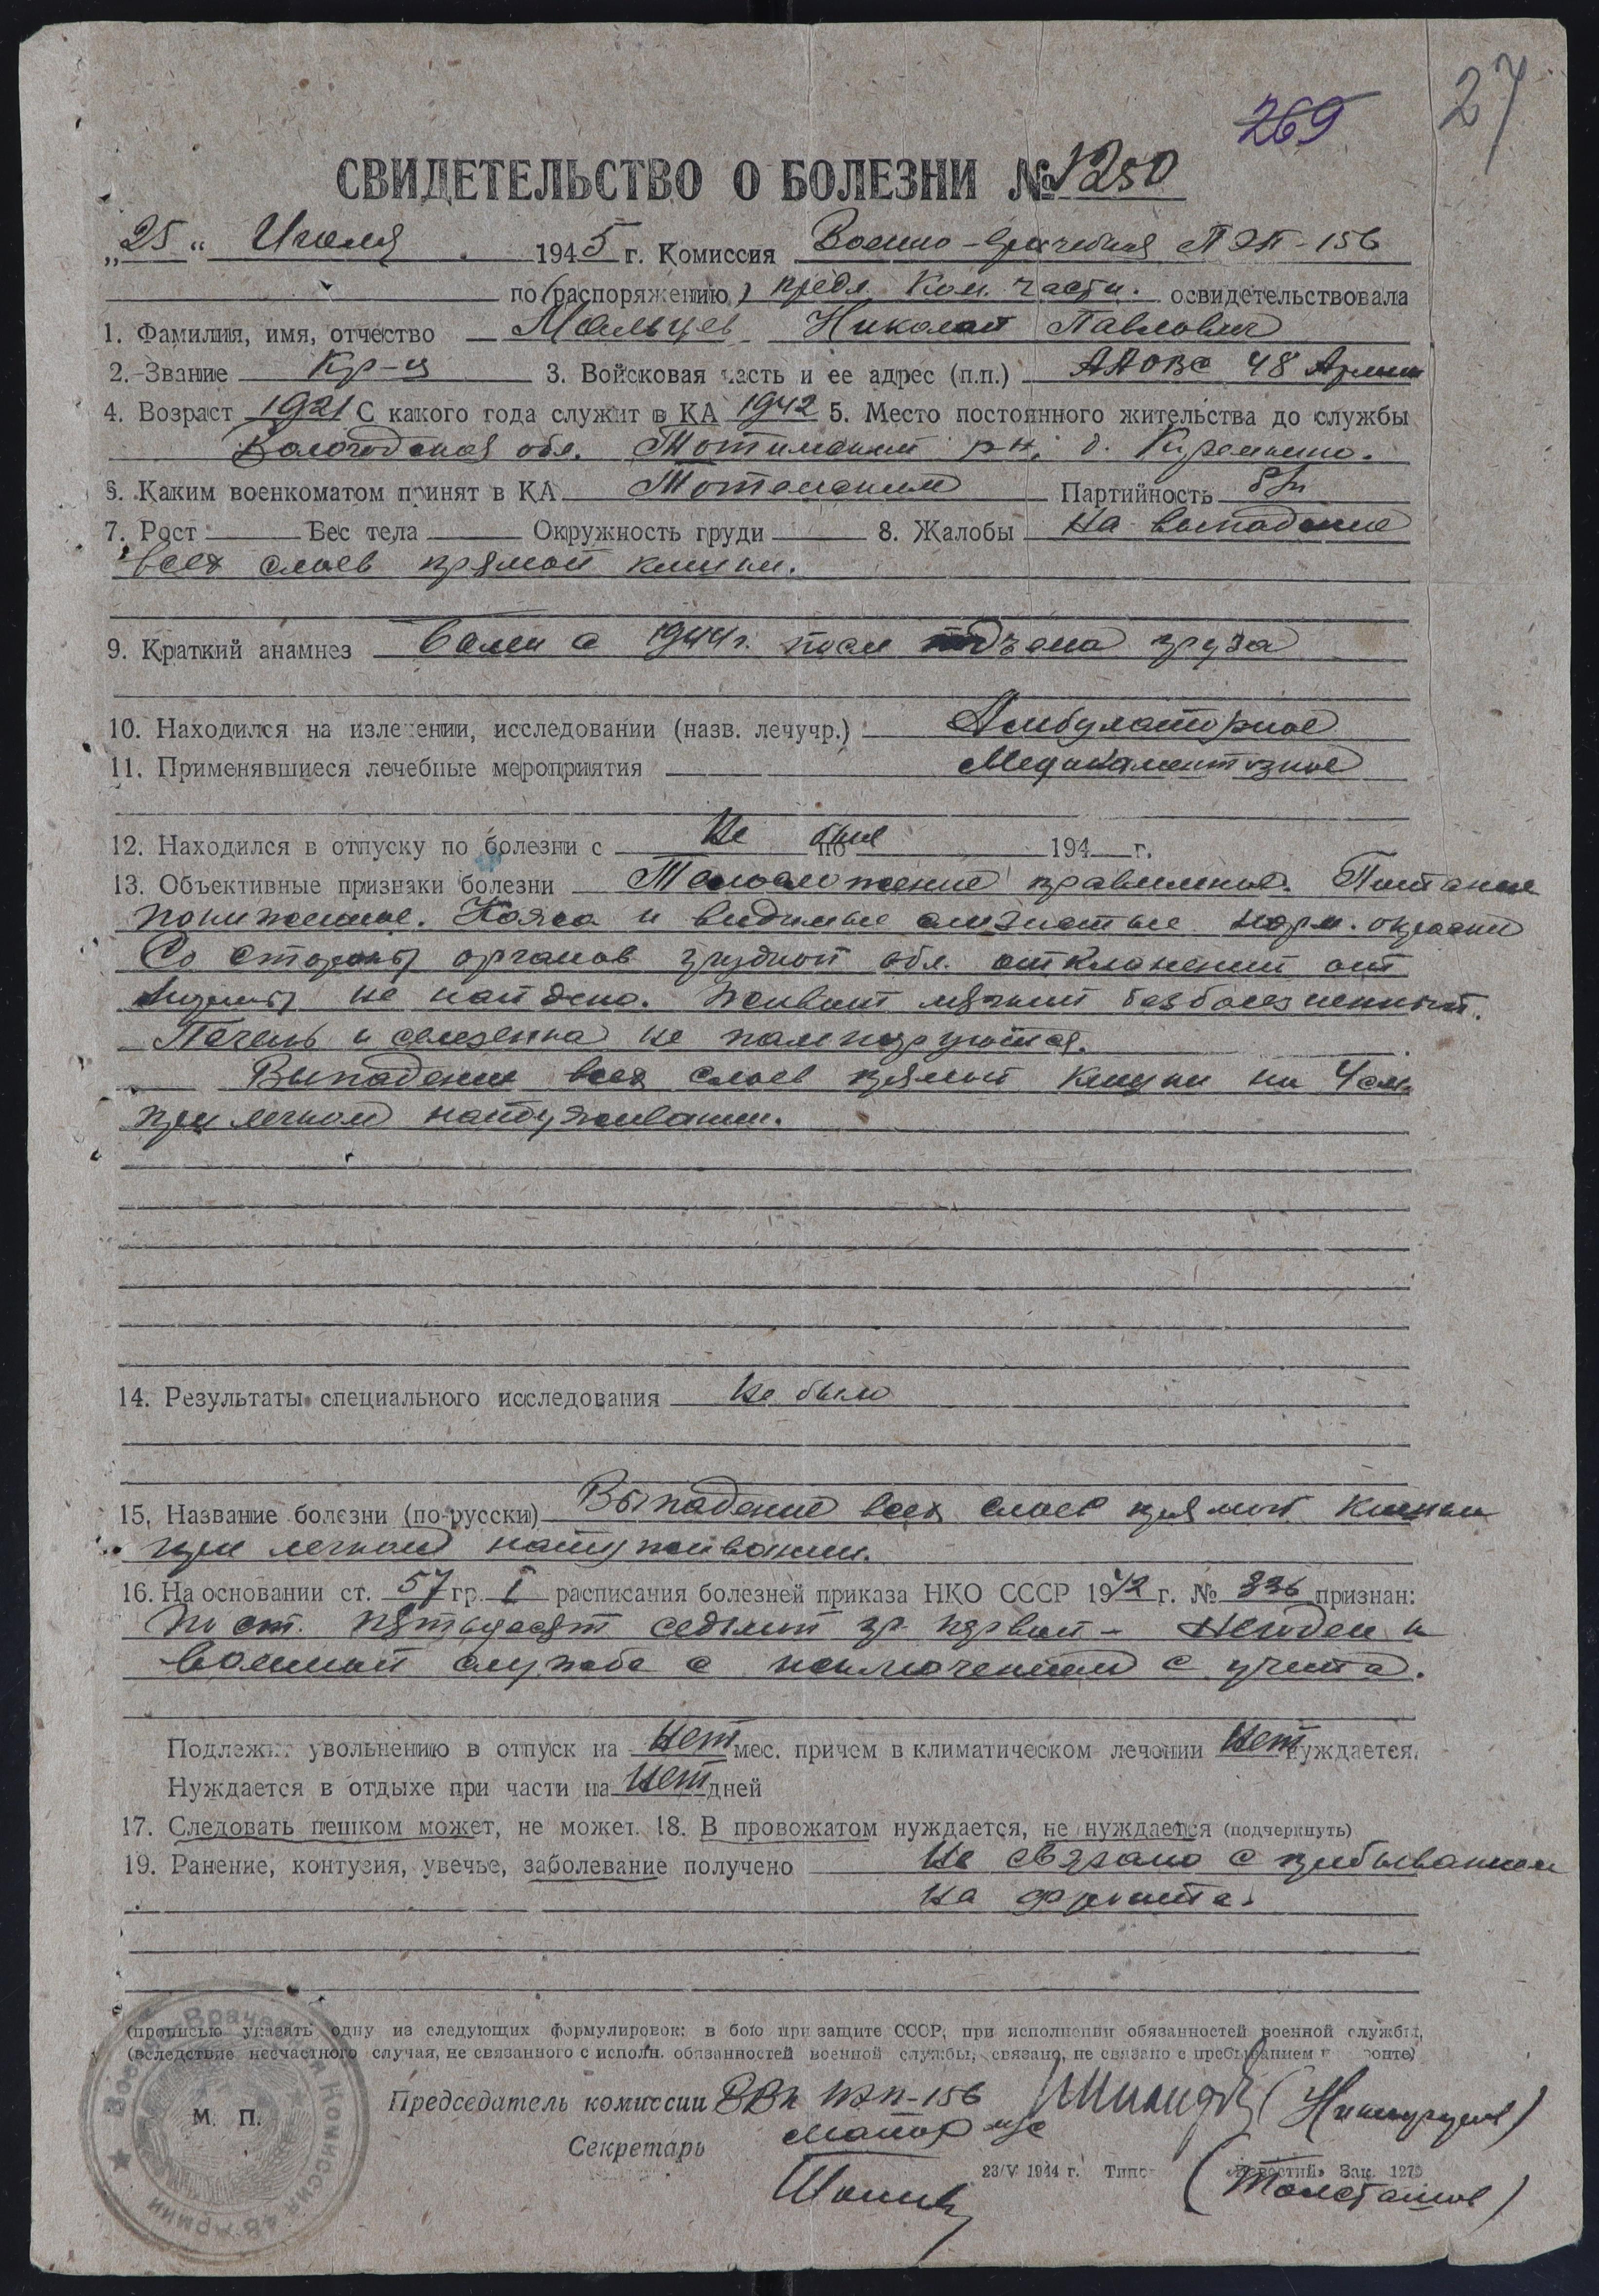 27
269
СВИДЕТЕЛЬСТВО О БОЛЕЗНИ № 1250
„25“ Июля 1945 г. Комиссия Военно-врачебная ПЭП-156
по (распоряжению) предл. Ком. части. освидетельствовала
1. Фамилия, имя, отчество Мальцев Николай Павлович
2. Звание Кр-ц 3. Войсковая часть и ее адрес (п.п.) 48 Армии
4. Возраст 1921 С какого года служит в КА 1942 5. Место постоянного жительства до службы
Вологодская обл. Тотемский р-н, д.
6. Каким военкоматом принят в КА Тотемским Партийность б/п
7. Рост Вес тела Окружность груди 8. Жалобы На выпадение
всех слоев прямой кишки.
9. Краткий анамнез Болен с 1944 г. после подъема груза
10. Находился на излечении, исследовании (назв. лечучр.) Амбулаторное
11. Применявшиеся лечебные мероприятия Медикаментозное
12. Находился в отпуску по болезни с Не был по 194 г.
13. Объективные признаки болезни Телосложение правильное. Питание
пониженное. Кожа и видимые слизистые норм. окраски
Со стороны органов грудной обл. отклонений от
нормы не найдено. Живот мягкий безболезненный.
Печень и селезенка не пальпируются.
Выпадение всех слоев прямой кишки на 4 см.
при легком натуживании.
14. Результаты специального исследования Не было
15. Название болезни (по-русски) Выпадение всех слоев прямой кишки
при легком натуживании.
16. На основании ст. 57 гр. I расписания болезней приказа НКО СССР 1942 г. № 336 признан:
По ст. пятьдесят седьмой гр. первой - Негоден к
военной службе с исключением с учета.
Подлежит увольнению в отпуск на нет мес. причем в климатическом лечении нет нуждается.
Нуждается в отдыхе при части на нет дней
17. Следовать пешком может, не может. 18. В провожатом нуждается, не нуждается (подчеркнуть)
19. Ранение, контузия, увечье, заболевание получено Не связано с пребыванием
на фронте.
(прописью указать одну из следующих формулировок: в бою при защите СССР, при исполнении обязанностей военной службы,
(вследствие несчастного случая, не связанного с исполн. обязанностей военной службы, связано, не связано с пребыванием на фронте)
Председатель комиссии ВВК ПЭП-156
майор м/с
Секретарь
23/V 1944 г. Зак. 127
М. П.
Военно-Врачебная Комиссия 48 Армии